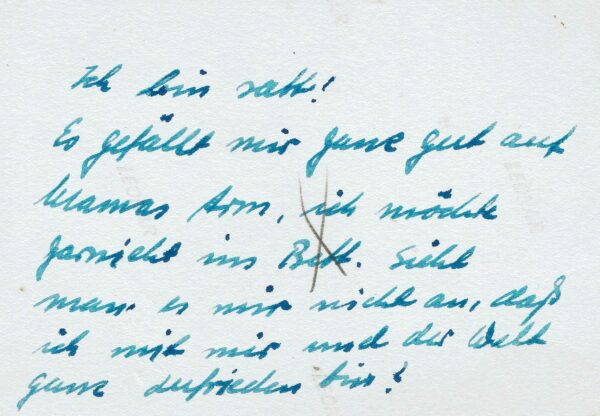 Ich bin satt!
Es gefällt mir ganz gut auf
Mamas Arm, ich möchte
garnicht ins Bett. Sieht
man es mir nicht an, daß
ich mit mir und der Welt
ganz zufrieden bin!